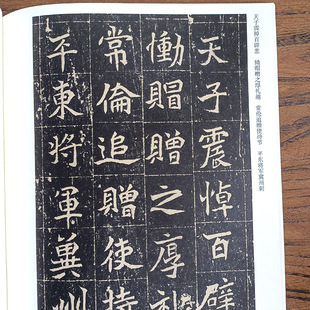 天子震悼百辟悲 恸赗赠之厚礼逾 常伦追赠使持节 平东将军冀州刺
天子震悼百辟
慟賵贈之厚礼
常倫追贈使持
平東將軍冀州